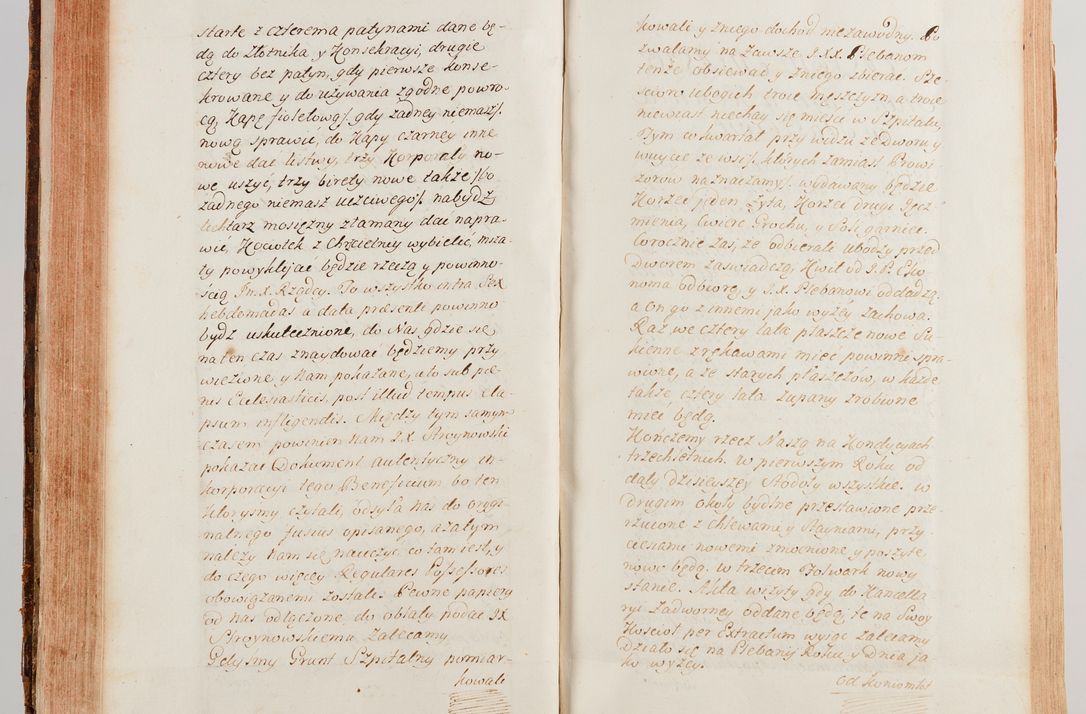 starte z czterema patynami dane bę-
dą do Złotnika, y Konsekracyi, drugie
cztery bez patyn, gdy pierwsze konse-
krowane y do używania zgodne powro-
cą, Kapę fioletową /. gdy żadney niemasz /.
nową sprawić, do Kapy czarney inne
nowe dać listwy, trzy Korporały no-
we uszyć, trzy birety nowe także /. bo
żadnego niemasz uczciwego /. nabydź,
lichtarz mosiężny złamany dać napra-
wić, Kociołek z Chrzcielnicy wybielić, msza-
ły powyklejać będzie rzeczą y powinno-
ścią Jm.X. Rządcy. To wszystko intra Sex
hebdomadas a data præsenti powinno
bydź uskutecznione, do Nas gdzie się
na ten czas znaydować będziemy przy
wiezione y Nam pokazane, a to sub pæ-
nis Ecclesiasticis, post illud tempus ela-
psum infligendis. Między tym samym
czasem powinien Nam J.X. Stroynowski
pokazać Dokument autentyczny in-
korporacyi tego Beneficium bo ten
ktoryśmy czytali, odsyła nas do orygi-
nalnego fusius opisanego, a zatym
należy Nam się nauczyć co tam iest, y
do czego więcey Regulares Possessores
obowiązanemi zostali. Pewne papiery
od nas odłączone, do oblaty podać JX
Stroynowskiemu zalecamy.
Gdyśmy Grunt Szpitalny pomiar-
kowali
kowali y zniego dochod niezawodny. Po
zwalamy na Zawsze J.XX. Plebanom
tenże obsiewać y zniego zbierać. Sze-
ścioro ubogich troie męszczyzn, a troie
niewiast niechay się mieści w Szpitalu,
Tym co kwartał przy widzu ze Dworu y
wuycie ze wsi /. ktorych zamiast Prowi-
zorow naznaczamy /. wydawany będzie
Korzec jeden Żyta, Korzec drugi Jęcz
mienia, Cwierć Grochu, y Soli garniec.
Corocznie zaś, że odbierali ubodzy przed
Dworem zaświadczą, Kwit od J.P. Eko
noma odbiorą, y J.X. Plebanowi oddadzą.
a On go z innemi jako wyżey zachowa.
Raz we cztery lata płaszcze nowe Su-
kienne z rękawami mieć powinni spra-
wione, a ze starych płaszczów, w każde
także cztery lata Zupany zrobione
mieć będą.
Kończemy rzecz Naszą na Kondycyach
trzechletnich. w pierwszym Roku od
daty dzisieyszey Stodoły wszystkie. w
drugim Okoły bydlne przestawione prze-
rzucone z chlewami y Stayniami, przy
ciesiami nowemi zmocnione y poszyte
nowo będą. w trzecim Folwark nowy
stanie. Akta wizyty gdy do Kancella
ryi Zadworney oddane będą, te na Swoy
Kościoł per Extractum wyiąć zalecamy
Działo się na Plebanij Roku y Dnia ja
ko wyżey.
Od Koniomłot